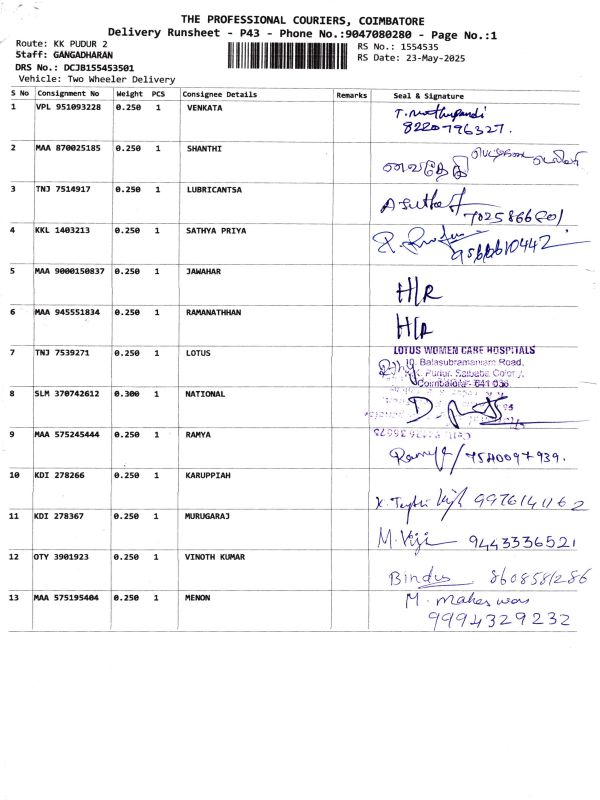 THE PROFESSIONAL COURIERS, COIMBATORE
Delivery Runsheet - P43 - Phone No.:9047080280 - Page No.:1
Route: KK PUDUR 2
RS No.: 1554535
Staff: GANGADHARAN
RS Date: 23-May-2025
DRS No.: DCJB155453501
Vehicle: Two Wheeler Delivery
S No Consignment No Weight PCS Consignee Details Remarks Seal & Signature
1 VPL 951093228 0.250 1 VENKATA
8220796327.
2 MAA 870025185 0.250 1 SHANTHI
3 TNJ 7514917 0.250 1 LUBRICANTSA
4 KKL 1403213 0.250 1 SATHYA PRIYA
5 MAA 9000150837 0.250 1 JAWAHAR
H/R
6 MAA 945551834 0.250 1 RAMANATHHAN
H/R
7 TNJ 7539271 0.250 1 LOTUS
LOTUS WOMEN CARE HOSPITALS
10, Balasubramaniam Road,
Pudur, Saibaba Colony,
Coimbatore- 641 038
8 SLM 370742612 0.300 1 NATIONAL
9 MAA 575245444 0.250 1 RAMYA
Ramya / 7540097939.
10 KDI 278266 0.250 1 KARUPPIAH
9976141162
11 KDI 278367 0.250 1 MURUGARAJ
M. Viji 9443336521
12 OTY 3901923 0.250 1 VINOTH KUMAR
Bindus 8608581286
13 MAA 575195404 0.250 1 MENON
M. maheswari
9994329232